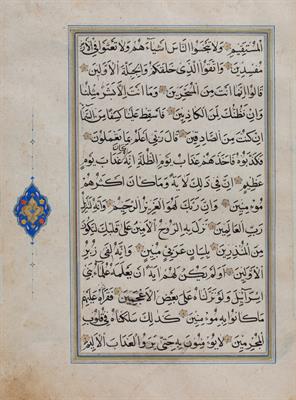 الْمُسْتَقِيمِ وَلَا تَبْخَسُوا النَّاسَ أَشْيَاءَهُمْ وَلَا تَعْثَوْا فِي الْأَرْضِ
مُفْسِدِينَ وَاتَّقُوا الَّذِي خَلَقَكُمْ وَالْجِبِلَّةَ الْأَوَّلِينَ
قَالُوا إِنَّمَا أَنْتَ مِنَ الْمُسَحَّرِينَ وَمَا أَنْتَ إِلَّا بَشَرٌ مِثْلُنَا
وَإِنْ نَظُنُّكَ لَمِنَ الْكَاذِبِينَ فَأَسْقِطْ عَلَيْنَا كِسَفًا مِنَ السَّمَاءِ
إِنْ كُنْتَ مِنَ الصَّادِقِينَ قَالَ رَبِّي أَعْلَمُ بِمَا تَعْمَلُونَ
فَكَذَّبُوهُ فَأَخَذَهُمْ عَذَابُ يَوْمِ الظُّلَّةِ إِنَّهُ كَانَ عَذَابَ يَوْمٍ
عَظِيمٍ إِنَّ فِي ذَلِكَ لَآيَةً وَمَا كَانَ أَكْثَرُهُمْ
مُؤْمِنِينَ وَإِنَّ رَبَّكَ لَهُوَ الْعَزِيزُ الرَّحِيمُ وَإِنَّهُ لَتَنْزِيلُ
رَبِّ الْعَالَمِينَ نَزَلَ بِهِ الرُّوحُ الْأَمِينُ عَلَى قَلْبِكَ لِتَكُونَ
مِنَ الْمُنْذِرِينَ بِلِسَانٍ عَرَبِيٍّ مُبِينٍ وَإِنَّهُ لَفِي زُبُرِ
الْأَوَّلِينَ أَوَلَمْ يَكُنْ لَهُمْ آيَةً أَنْ يَعْلَمَهُ عُلَمَاءُ بَنِي
إِسْرَائِيلَ وَلَوْ نَزَّلْنَاهُ عَلَى بَعْضِ الْأَعْجَمِينَ فَقَرَأَهُ عَلَيْهِمْ
مَا كَانُوا بِهِ مُؤْمِنِينَ كَذَلِكَ سَلَكْنَاهُ فِي قُلُوبِ
الْمُجْرِمِينَ لَا يُؤْمِنُونَ بِهِ حَتَّى يَرَوُا الْعَذَابَ الْأَلِيمَ